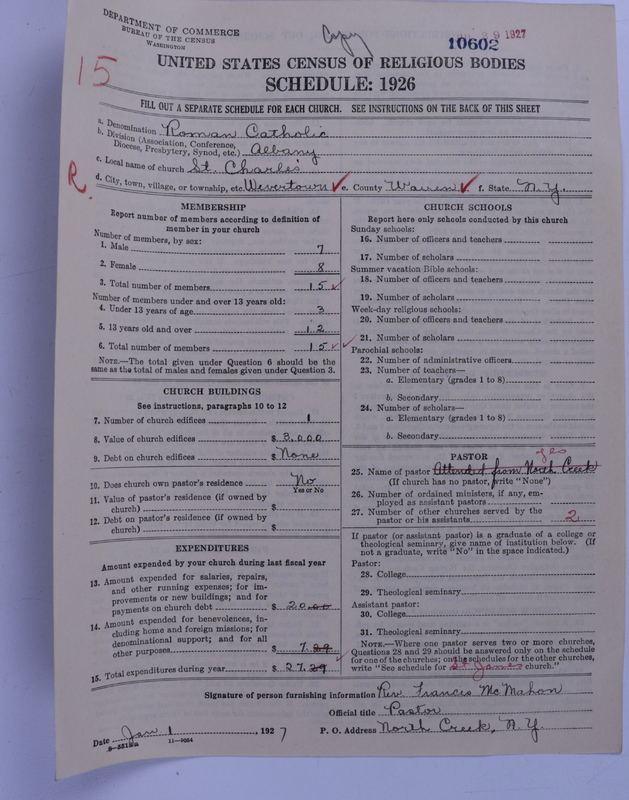 DEPARTMENT OF COMMERCE
BUREAU OF THE CENSUS
WASHINGTON
Copy
10602
29 1927
15
UNITED STATES CENSUS OF RELIGIOUS BODIES
SCHEDULE: 1926
FILL OUT A SEPARATE SCHEDULE FOR EACH CHURCH. SEE INSTRUCTIONS ON THE BACK OF THIS SHEET
a. Denomination Roman Catholic
b. Division (Association, Conference, Diocese, Presbytery, Synod, etc.) Albany
c. Local name of church St. Charles
R.
d. City, town, village, or township, etc. Wevertown e. County Warren f. State N.Y.
MEMBERSHIP
Report number of members according to definition of
member in your church
Number of members, by sex:
1. Male 7
2. Female 8
3. Total number of members 15
Number of members under and over 13 years old:
4. Under 13 years of age 3
5. 13 years old and over 12
6. Total number of members 15
NOTE.—The total given under Question 6 should be the
same as the total of males and females given under Question 3.
CHURCH BUILDINGS
See instructions, paragraphs 10 to 12
7. Number of church edifices 1
8. Value of church edifices $ 3,000
9. Debt on church edifices $ None
10. Does church own pastor's residence No
Yes or No
11. Value of pastor's residence (if owned by
church) $
12. Debt on pastor's residence (if owned by
church) $
EXPENDITURES
Amount expended by your church during last fiscal year
13. Amount expended for salaries, repairs,
and other running expenses; for im-
provements or new buildings; and for
payments on church debt $ 20.00
14. Amount expended for benevolences, in-
cluding home and foreign missions; for
denominational support; and for all
other purposes $ 7.29
15. Total expenditures during year $ 27.29
CHURCH SCHOOLS
Report here only schools conducted by this church
Sunday schools:
16. Number of officers and teachers
17. Number of scholars
Summer vacation Bible schools:
18. Number of officers and teachers
19. Number of scholars
Week-day religious schools:
20. Number of officers and teachers
21. Number of scholars
Parochial schools:
22. Number of administrative officers
23. Number of teachers—
a. Elementary (grades 1 to 8)
b. Secondary
24. Number of scholars—
a. Elementary (grades 1 to 8)
b. Secondary
PASTOR
yes
25. Name of pastor Attended from North Creek
(If church has no pastor, write "None")
26. Number of ordained ministers, if any, em-
ployed as assistant pastors
27. Number of other churches served by the
pastor or his assistants 2
If pastor (or assistant pastor) is a graduate of a college or
theological seminary, give name of institution below. (If
not a graduate, write "No" in the space indicated.)
Pastor:
28. College
29. Theological seminary
Assistant pastor:
30. College
31. Theological seminary
NOTE.—Where one pastor serves two or more churches,
Questions 28 and 29 should be answered only on the schedule
for one of the churches; on the schedules for the other churches,
write "See schedule for St. James church."
Signature of person furnishing information Rev. Francis McMahon
Official title Pastor
Date Jan 1, 1927 P. O. Address North Creek, N.Y.
11—9064